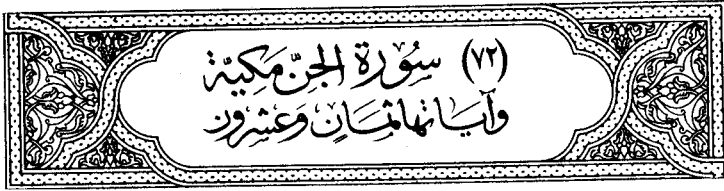 (٧٢) سُورَة الجِنّ مَكِيَّة
وَآيَاتهَا ثَمَانٍ وَعشِرُون